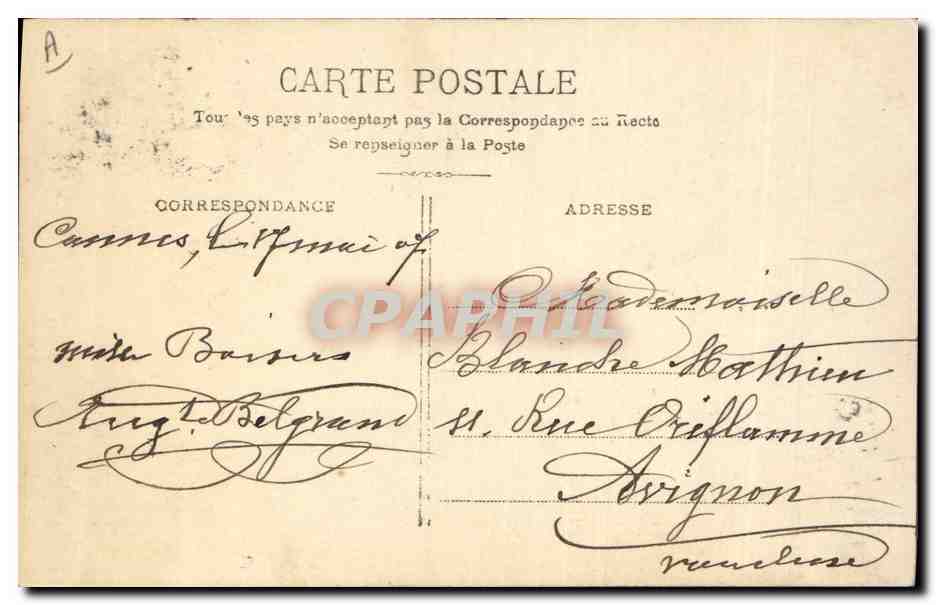 A
CARTE POSTALE
Tous les pays n'acceptent pas la Correspondance au Recto
Se renseigner à la Poste
CORRESPONDANCE
ADRESSE
Cannes, le 17 mai 07
mille Baisers
Aug.te Belgrand
Mademoiselle
Blanche Mathieu
11, Rue Oriflamme
Avignon
vaucluse
CPAPHIL